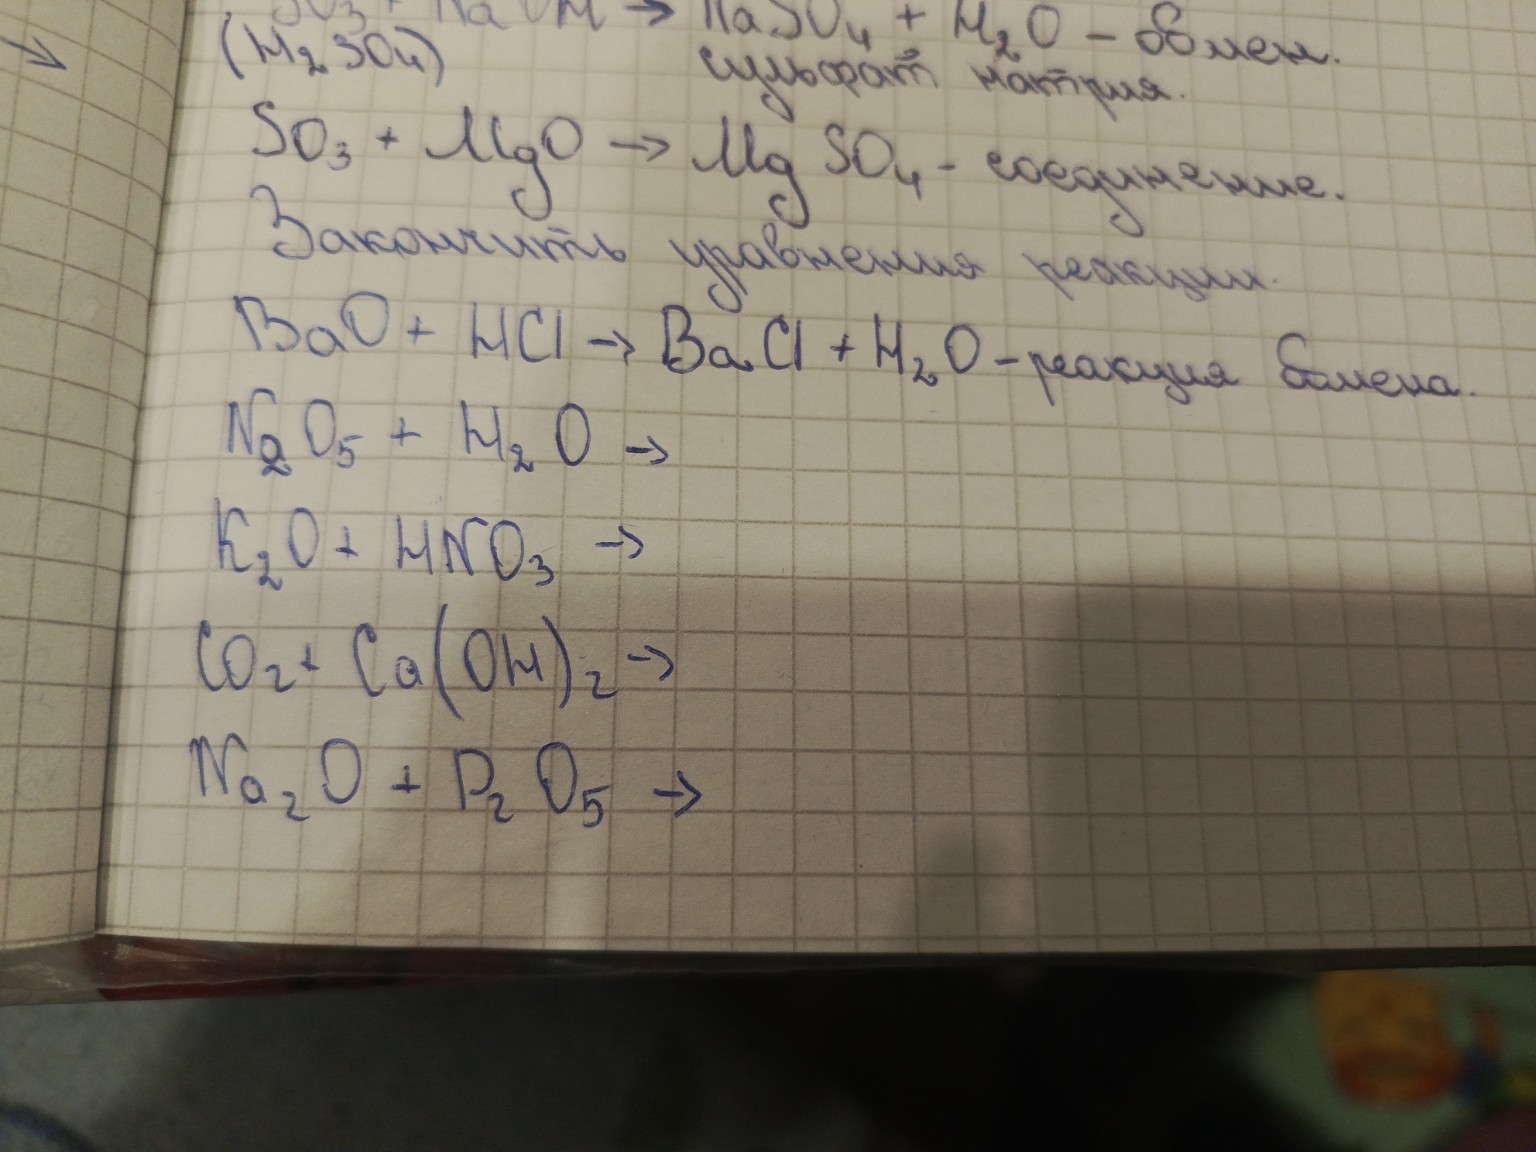 SO3 + NaOH → NaSO4 + H2O - обмен.
(H2SO4) сульфат натрия.
SO3 + MgO → MgSO4 - соединение.
Закончить уравнения реакции.
BaO + HCl → BaCl + H2O - реакция обмена.
N2O5 + H2O →
K2O + HNO3 →
CO2 + Ca(OH)2 →
Na2O + P2O5 →